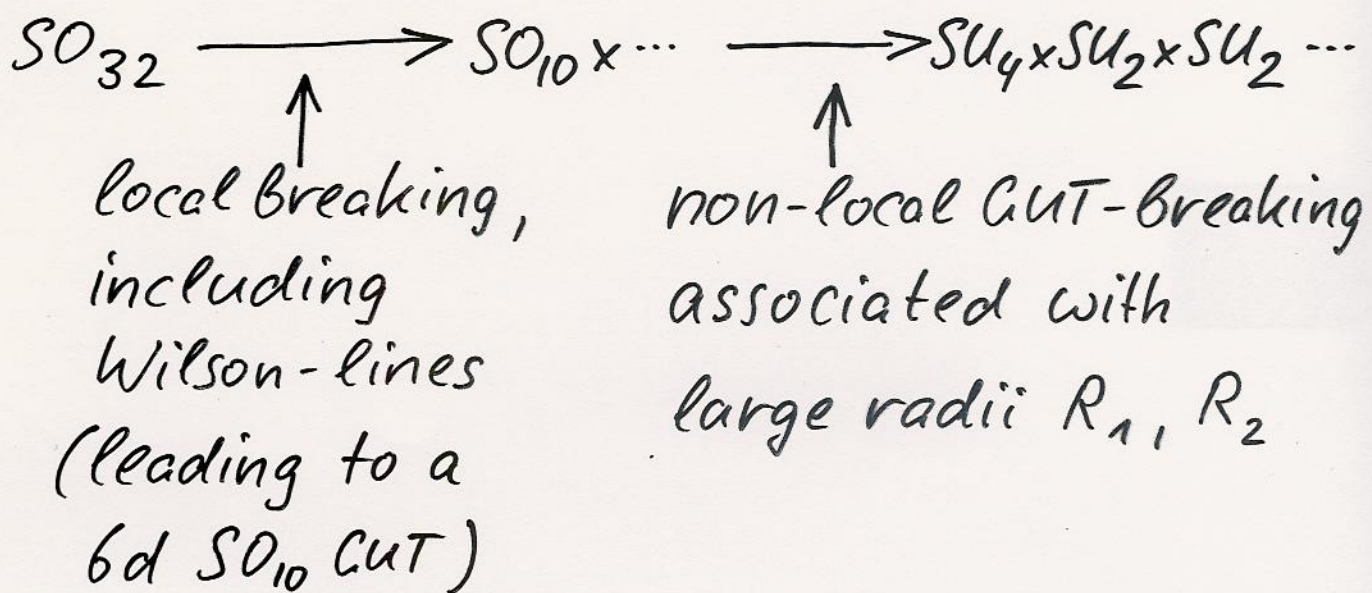 SO₃₂ ⟶ SO₁₀ × ··· ⟶ SU₄×SU₂×SU₂ ···
↑ ↑
local breaking,
including
Wilson-lines
(leading to a
6d SO₁₀ GUT)
non-local GUT-breaking
associated with
large radii R₁, R₂